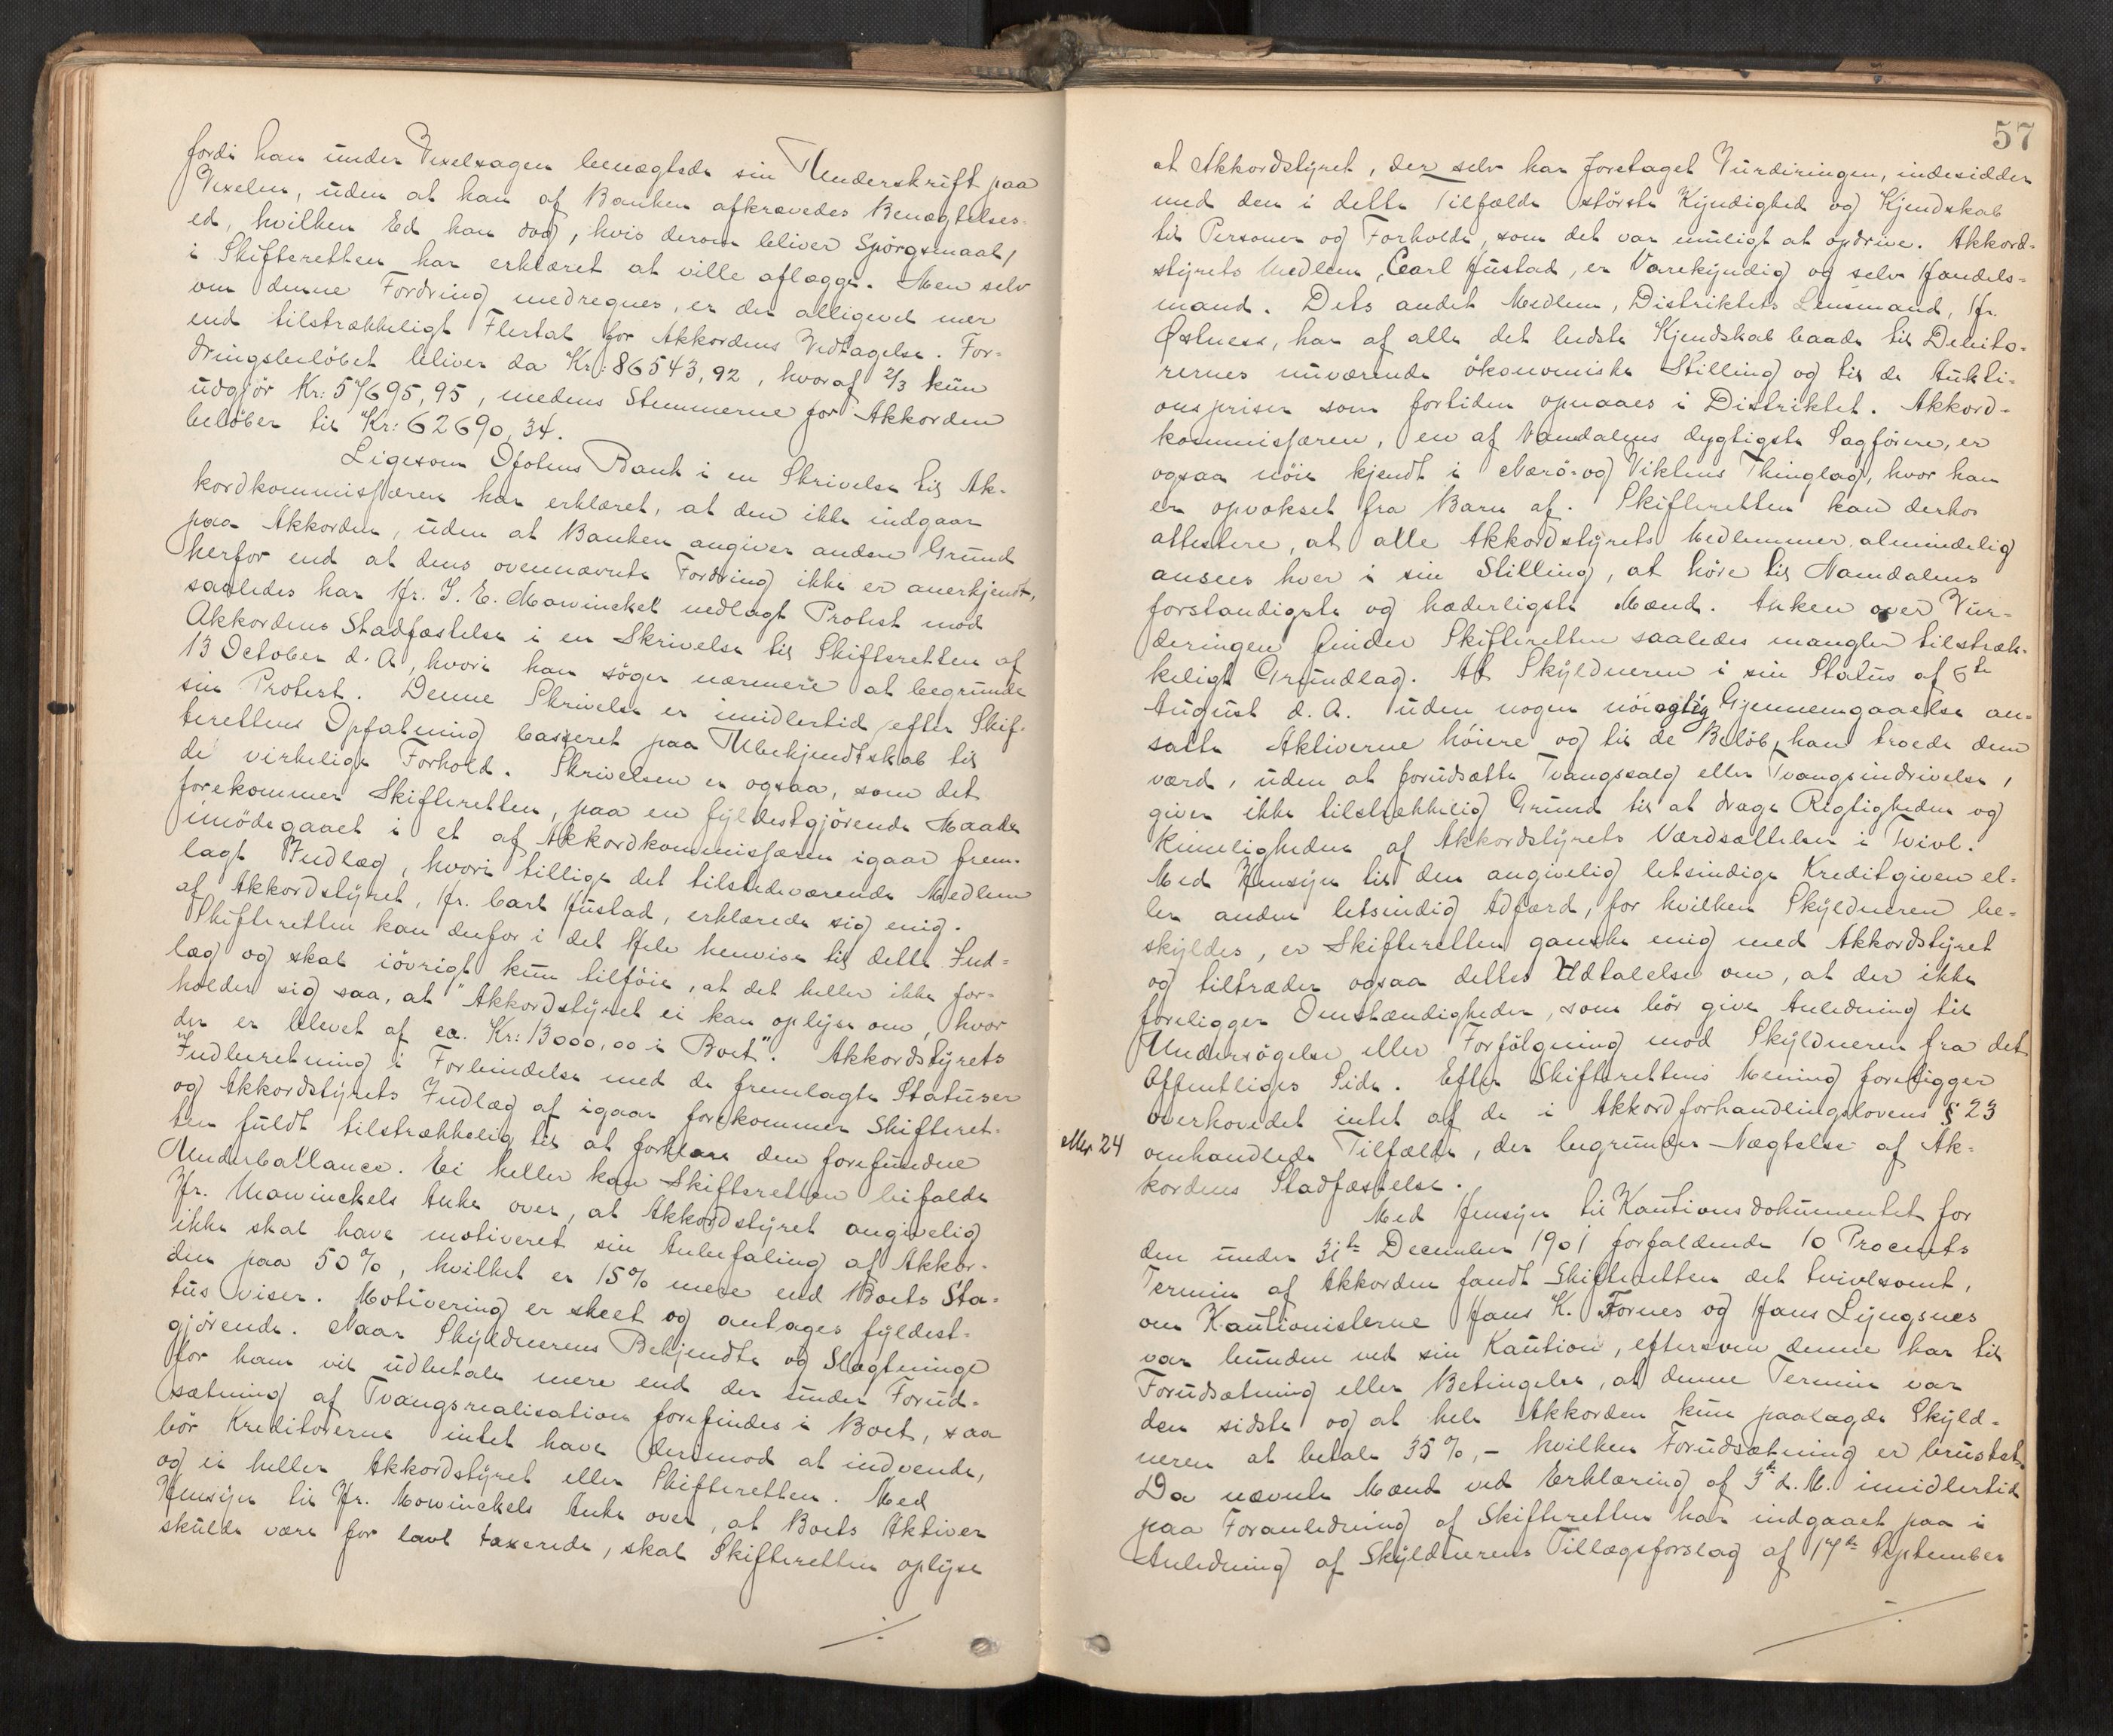 fordi han under Vexelsagen benægtede sin Underskrift paa
Vexelen, uden at han af Banken afkrævedes Benægtelses-
ed, hvilken Ed han dog, hvis derom bliver Spörgsmaal,
i Skifteretten har erklæret at ville aflægge. Men selv
om denne Fordring medregnes, er der alligevel mer
end tilstrækkeligt Flertal for Akkordens Vedtagelse. For-
dringsbelöbet bliver da Kr: 86543,92, hvoraf 2/3 kun
udgjör Kr: 57695,95, medens Stemmerne for Akkorden
belöber til Kr: 62690,34.
Ligesom Ofotens Bank i en Skrivelse til Ak-
kordkommissæren har erklæret, at den ikke indgaar
paa Akkorden, uden at Banken angiver anden Grund
herfor end at dens ovennævnte Fordring ikke er anerkjendt,
saaledes har Hr. J. E. Mowinckel nedlagt Protest mod
Akkordens Stadfæstelse i en Skrivelse til Skifteretten af
13 October d. A., hvori han söger nærmere at begrunde
sin Protest. Denne Skrivelse er imidlertid efter Skif-
terettens Opfatning basseret paa Ubekjendtskab til
de virkelige Forhold. Skrivelsen er ogsaa, som det
forekommer Skifteretten, paa en fyldestgjörende Maade
imödegaaet i et af Akkordkommissæren igaar frem-
lagt Indlæg, hvori tillige det tilstedeværende Medlem
af Akkordstyret, Hr. Carl Hustad, erklærede sig enig.
Skifteretten kan derfor i det Hele henvise til dette Ind-
læg og skal iövrigt kun tilföie, at det heller ikke for-
holder sig saa, at "Akkordstyret ei kan oplyse om, hvor
der er blevet af ca. Kr: 13000,00 i Boet". Akkordstyrets
Indberetning i Forbindelse med de fremlagte Statuser
og Akkordstyrets Indlæg af igaar forekommer Skifteret-
ten fuldt tilstrækkelig til at forklare den forefundne
Underballance. Ei heller kan Skifteretten bifalde
Hr. Mowinckels Anke over, at Akkordstyret angivelig
ikke skal have motiveret sin Anbefaling af Akkor-
den paa 50%, hvilket er 15% mere end Boets Sta-
tus viser. Motivering er skeet og antages fyldest-
gjörende. Naar Skyldnerens Bekjendte og Slægtninge
for ham vil udbetale mere end der under Forud-
sætning af Tvangsrealisation forefindes i Boet, saa
bör Kreditorerne intet have derimod at indvende,
og ei heller Akkordstyret eller Skifteretten. Med
Hensyn til Hr. Mowinckels Anke over, at Boets Aktiver
skulde være for lavt taxerede, skal Skifteretten oplyse
57
at Akkordstyret, der selv har foretaget Vurderingen, indesidder
med den i dette Tilfælde störste Kyndighed og Kjendskab
til Personer og Forholde, som det var muligt at opdrive. Akkord-
styrets Medlem, Carl Hustad, er Varekyndig og selv Handels-
mand. Dets andet Medlem, Distriktets Lensmand, Hr.
Østness, har af alle det bedste Kjendskab baade til Debito-
rernes nuværende ökonomiske Stilling og til de Aukti-
onspriser som fortiden opnaaes i Distriktet. Akkord-
kommissæren, en af Namdalens dygtigste Sagförere, er
ogsaa nöie kjendt i Nærö- og Viktens Thinglag, hvor han
er opvokset fra Barn af. Skifteretten kan derhos
attestere, at alle Akkordstyrets Medlemmer almindelig
ansees hver i sin Stilling, at höre til Namdalens
forstandigste og hæderligste Mænd. Anken over Vur-
deringen finder Skifteretten saaledes mangler tilstræk-
keligt Grundlag. At Skyldneren i sin Status af 6te
August d. A. uden nogen nöiagtig Gjennemgaaelse an-
satte Aktiverne höiere og til de Belöb, han troede dem
værd, uden at forudsætte Tvangssalg eller Tvangsindrivelse,
giver ikke tilstrækkelig Grund til at drage Rigtigheden og
Rimeligheden af Akkordstyrets Værdsættelser i Tvivl.
Med Hensyn til den angivelig letsindige Kreditgiven el-
ler anden letsindig Adfærd, for hvilken Skyldneren be-
skyldes, er Skifteretten ganske enig med Akkordstyret
og tiltræder ogsaa dettes Udtalelse om, at der ikke
foreligger Omstændigheder, som bör give Anledning til
Undersögelse eller Forfölgning mod Skyldneren fra det
Offentliges Side. Efter Skifterettens Mening foreligger
overhovedet intet af de i Akkordforhandlingslovens § 23
eller 24 omhandlede Tilfælde, der begrunder Nægtelse af Ak-
kordens Stadfæstelse.
Med Hensyn til Kautionsdokumentet for
den under 31te December 1901 forfaldende 10 Procents
Termin af Akkorden fandt Skifteretten det tvivlsomt,
om Kautionisterne Hans K. Fornes og Hans Lyngsnes
var bunden ved sin Kaution, eftersom denne har til
Forudsætning eller Betingelse, at denne Termin var
den sidste og at hele Akkorden kun paalagde Skyld-
neren at betale 35%, - hvilken Forudsætning er brustet.
Da nævnte Mænd ved Erklæring af 3de d. M. imidlertid
paa Foranledning af Skifteretten har indgaaet paa i
Anledning af Skyldnerens Tillægsforslag af 17de September